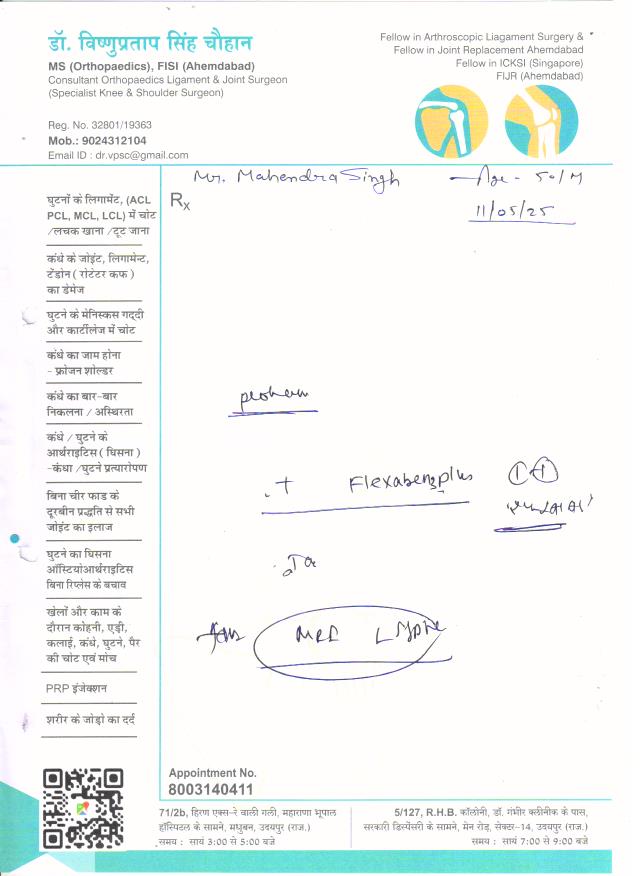 डॉ. विष्णुप्रताप सिंह चौहान
MS (Orthopaedics), FISI (Ahemdabad)
Consultant Orthopaedics Ligament & Joint Surgeon
(Specialist Knee & Shoulder Surgeon)
Reg. No. 32801/19363
Mob.: 9024312104
Email ID : dr.vpsc@gmail.com
Fellow in Arthroscopic Liagament Surgery &
Fellow in Joint Replacement Ahemdabad
Fellow in ICKSI (Singapore)
FIJR (Ahemdabad)
Mr. Mahendra Singh Age - 50/M
11/05/25
Rx
घुटनों के लिगामेंट, (ACL
PCL, MCL, LCL) में चोट
/लचक खाना /टूट जाना
कंधे के जोइंट, लिगामेन्ट,
टेंडोन ( रोटेटर कफ )
का डेमेज
घुटने के मेनिस्कस गद्दी
और कार्टीलेज में चोट
कंधे का जाम होना
- फ्रोजन शोल्डर
कंधे का बार-बार
निकलना / अस्थिरता
कंधे / घुटने के
आर्थराइटिस ( घिसना )
-कंधा /घुटने प्रत्यारोपण
बिना चीर फाड के
दूरबीन प्रद्धति से सभी
जोइंट का इलाज
घुटने का घिसना
ऑस्टियोआर्थराइटिस
बिना रिप्लेस के बचाव
खेलों और काम के
दौरान कोहनी, एड़ी,
कलाई, कंधे, घुटने, पैर
की चोट एवं मोच
PRP इंजेक्शन
शरीर के जोड़ो का दर्द
Flexabenz plus
MRI L Spine
Appointment No.
8003140411
71/2b, हिरण एक्स-रे वाली गली, महाराणा भूपाल
हॉस्पिटल के सामने, मधुबन, उदयपुर (राज.)
समय : सायं 3:00 से 5:00 बजे
5/127, R.H.B. कॉलोनी, डॉ. गंभीर क्लीनीक के पास,
सरकारी डिस्पेंसरी के सामने, मेन रोड़, सेक्टर-14, उदयपुर (राज.)
समय : सायं 7:00 से 9:00 बजे